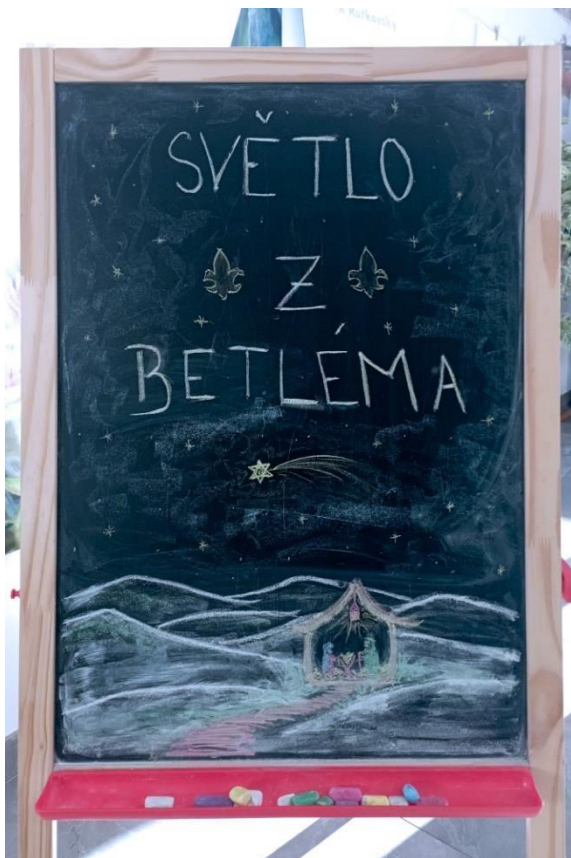 SVĚTLO
Z
BETLÉMA